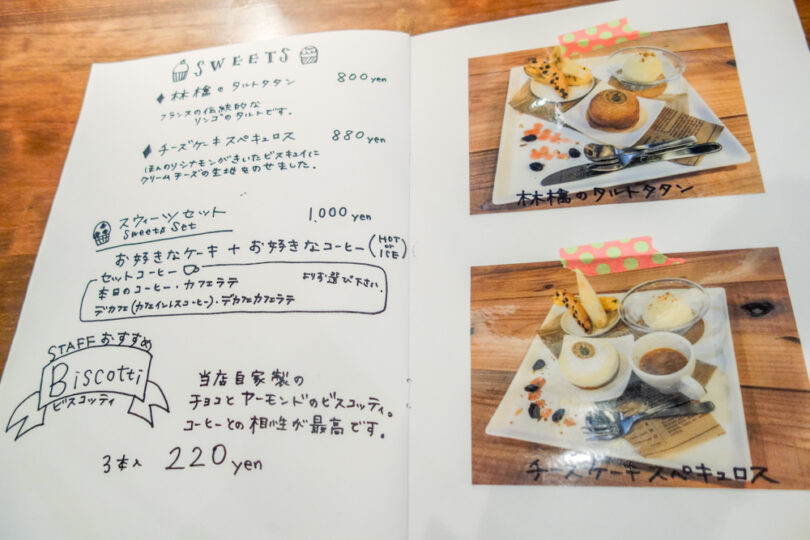 SWEETS
林檎のタルトタタン 800yen
フランスの伝統的な
リンゴのタルトです。
チーズケーキスペキュロス 880yen
ほんのりシナモンがきいたビスキュイに
クリームチーズの生地をのせました。
スウィーツセット 1,000yen
Sweets Set
お好きなケーキ + お好きなコーヒー (HOT or ICE)
セットコーヒー
本日のコーヒー・カフェラテ よりお選び下さい。
デカフェ(カフェインレスコーヒー)・デカフェカフェラテ
STAFFおすすめ
Biscotti
ビスコッティ
当店自家製の
チョコとアーモンドのビスコッティ。
コーヒーとの相性が最高です。
3本入 220yen
林檎のタルトタタン
チーズケーキスペキュロス